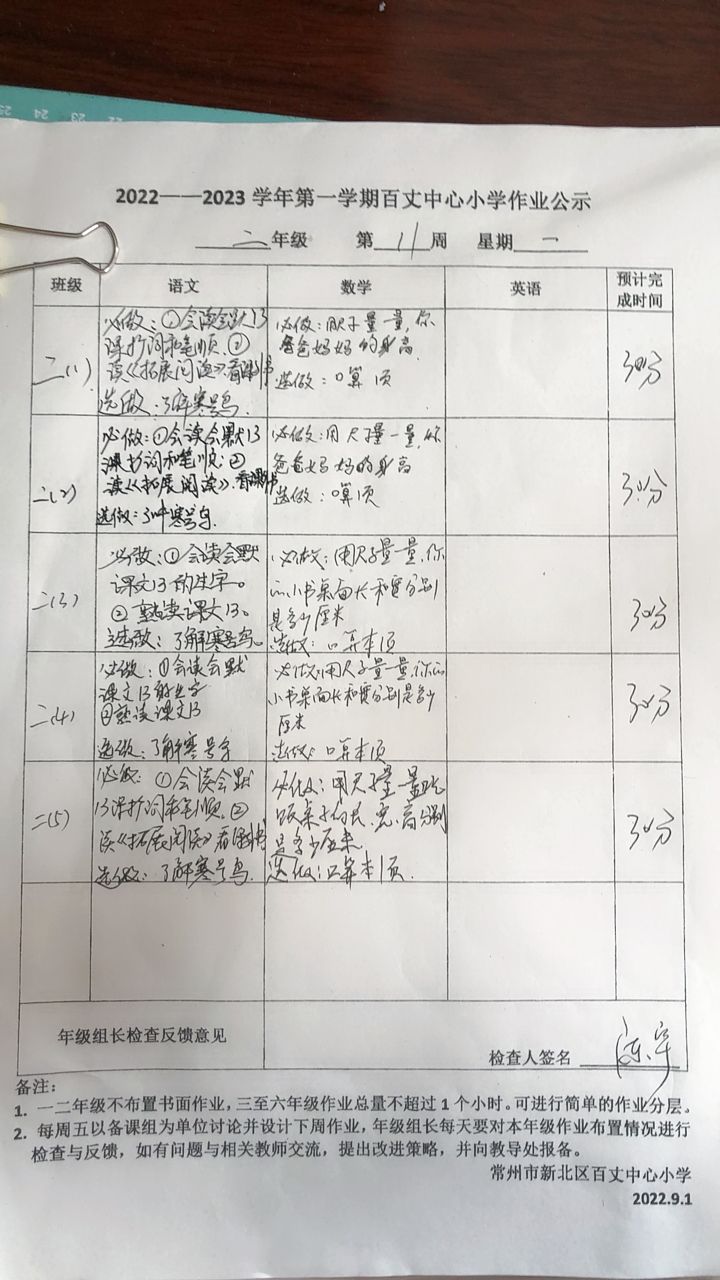 2022——2023 学年第一学期百丈中心小学作业公示
二年级 第 11 周 星期 一
班级 语文 数学 英语 预计完成时间
二(1)
必做：①会读会默13
课扩词和笔顺.②
读《拓展阅读》.看课外书
选做：了解寒号鸟.
必做：用尺子量一量,你
爸爸妈妈的身高.
选做：口算1页
30分
二(2)
必做：①会读会默13
课扩词和笔顺.②
读《拓展阅读》.看课外书
选做：了解寒号鸟.
必做：用尺子量一量,你
爸爸妈妈的身高
选做：口算1页
30分
二(3)
必做：①会读会默
课文13的生字。
②熟读课文13。
选做：了解寒号鸟。
必做：用尺子量一量,你
的小书桌面长和宽分别
是多少厘米
选做：口算本1页
30分
二(4)
必做：①会读会默
课文13的生字
②熟读课文13
选做：了解寒号鸟
必做：用尺子量一量,你的
小书桌面长和宽分别是多少
厘米
选做：口算本1页
30分
二(5)
必做：①会读会默
13课扩词和笔顺.②
读《拓展阅读》看课外书
选做：了解寒号鸟.
必做：用尺子量一量吃
饭桌子的长、宽、高分别
是多少厘米.
选做：口算本1页.
30分
年级组长检查反馈意见
检查人签名
备注：
1. 一二年级不布置书面作业，三至六年级作业总量不超过 1 个小时。可进行简单的作业分层。
2. 每周五以备课组为单位讨论并设计下周作业，年级组长每天要对本年级作业布置情况进行
检查与反馈，如有问题与相关教师交流，提出改进策略，并向教导处报备。
常州市新北区百丈中心小学
2022.9.1